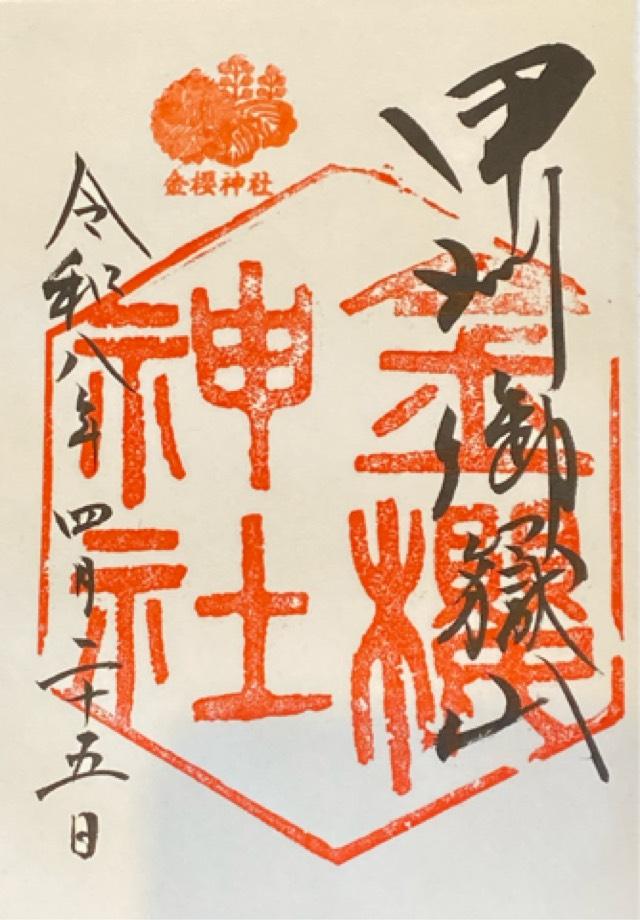 甲州御嶽山
金櫻神社
金櫻神社
令和八年四月二十五日